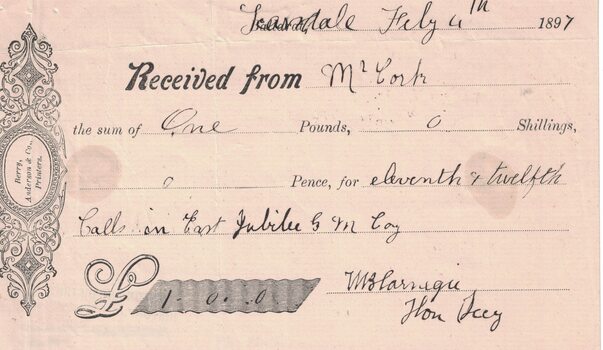 Scarsdale Feby 4th 1897
Received from Mr Cork
the sum of One Pounds, 0 Shillings,
0 Pence, for eleventh & twelfth
Calls in East Jubilee G M Coy
£ 1. 0. 0
Carnegie
Hon Secy
Berry,
Anderson & Co.,
Printers.